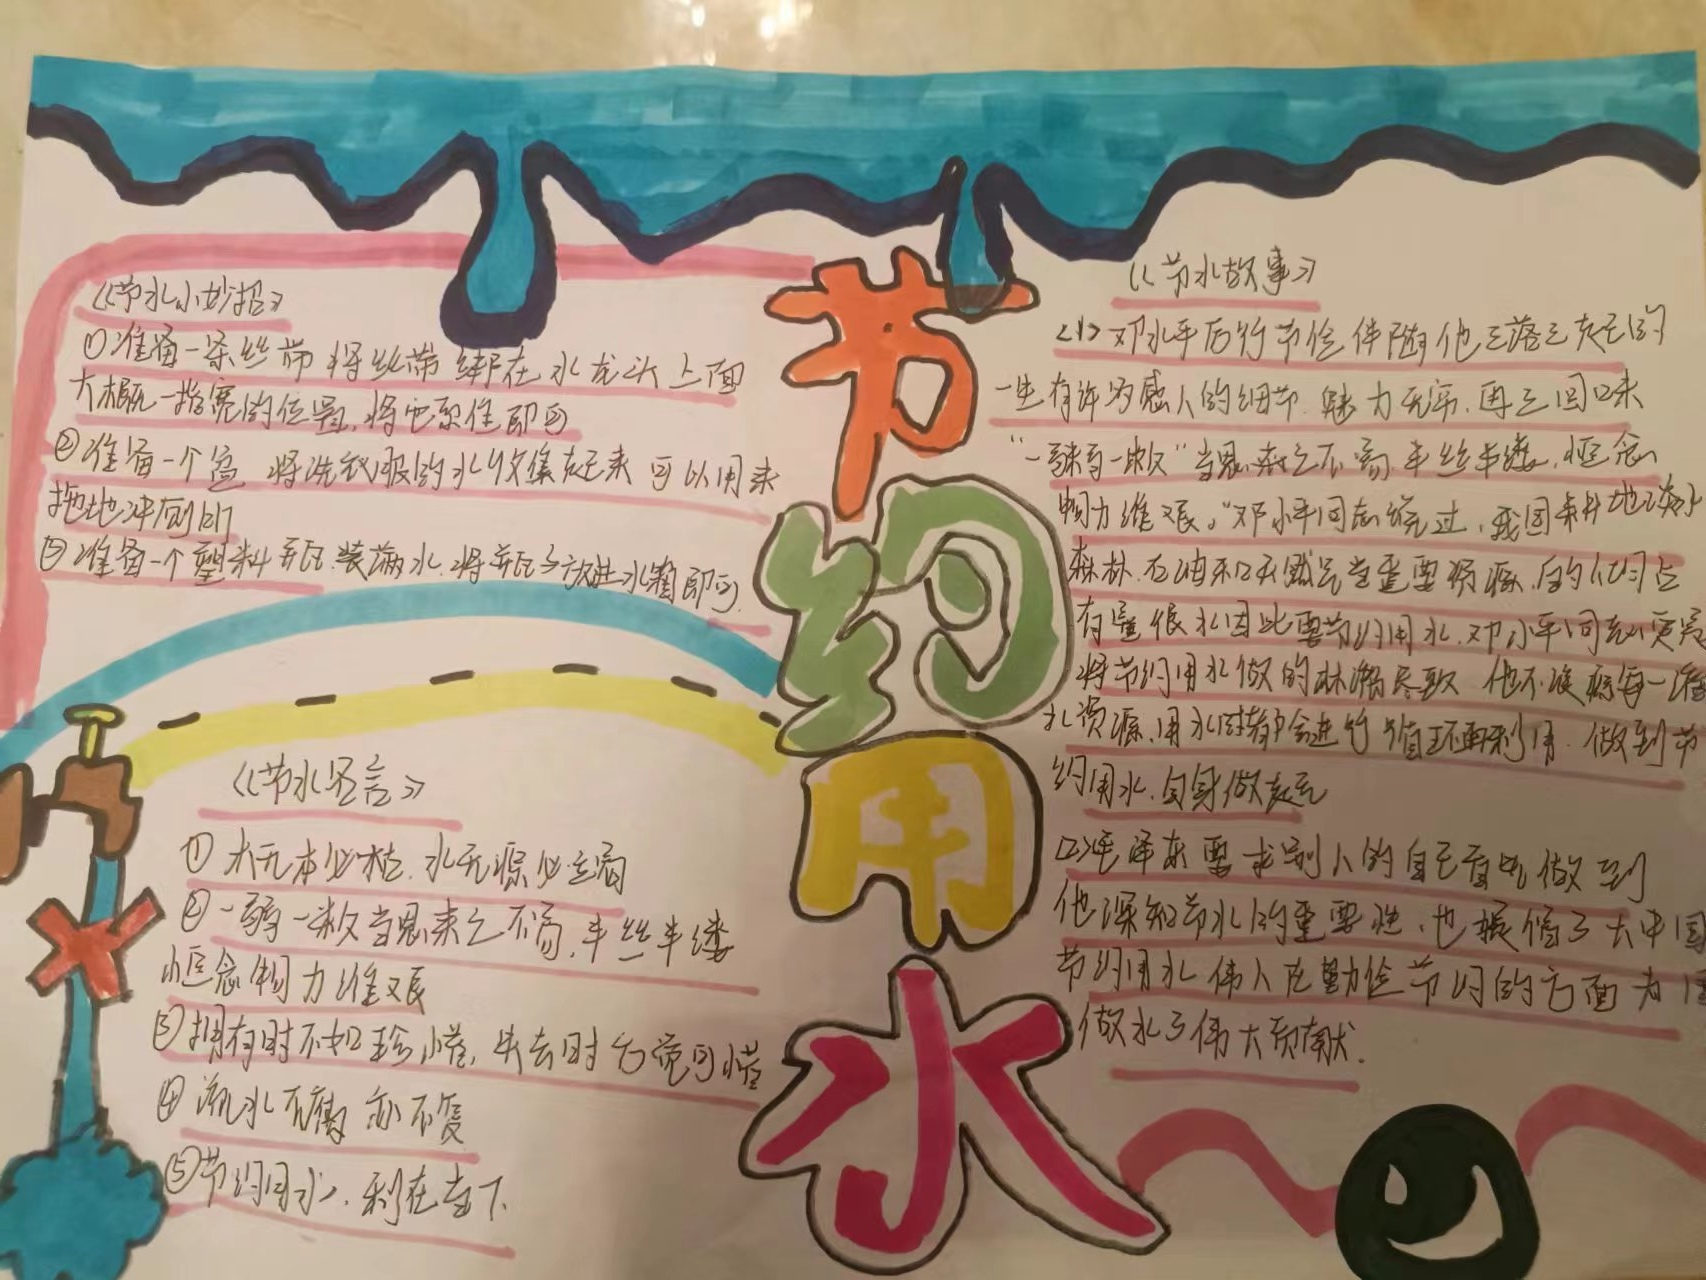 《节水小妙招》
①准备一条丝带 将丝带绑在水龙头上面
大概一指宽的位置,将它系住即可
②准备一个盆 将洗衣服的水收集起来 可以用来
拖地冲厕所
③准备一个塑料瓶.装满水.将瓶子放进水箱即可.
《节水圣言》
①木无本必枯.水无源必竭
②一粥一饭当思来之不易.半丝半缕
恒念物力维艰
③拥有时不知珍惜,失去时方觉可惜
④流水不腐 亦不复
⑤节约用水,利在当下
节约用水
《节水故事》
<1>邓小平厉行节俭伴随他三落三起的
一生有许多感人的细节.魅力无穷.再三回味
"一粥一饭"当思来之不易.半丝半缕.恒念
物力维艰。"邓小平同志说过,我国耕地
森林.石油和天然气当重要资源.的人均占
有量很 因此要节约用水.邓小平同志
将节约用水做的淋漓尽致 他不浪费每一滴
水资源.用水时都会进行循环再利用.做到节
约用水.自身做起
<2>毛泽东要求别人的自己首先做到
他深知节水的重要性.也 了大中国
节约用水 伟人在勤俭节约的方面为
做 了伟大贡献.